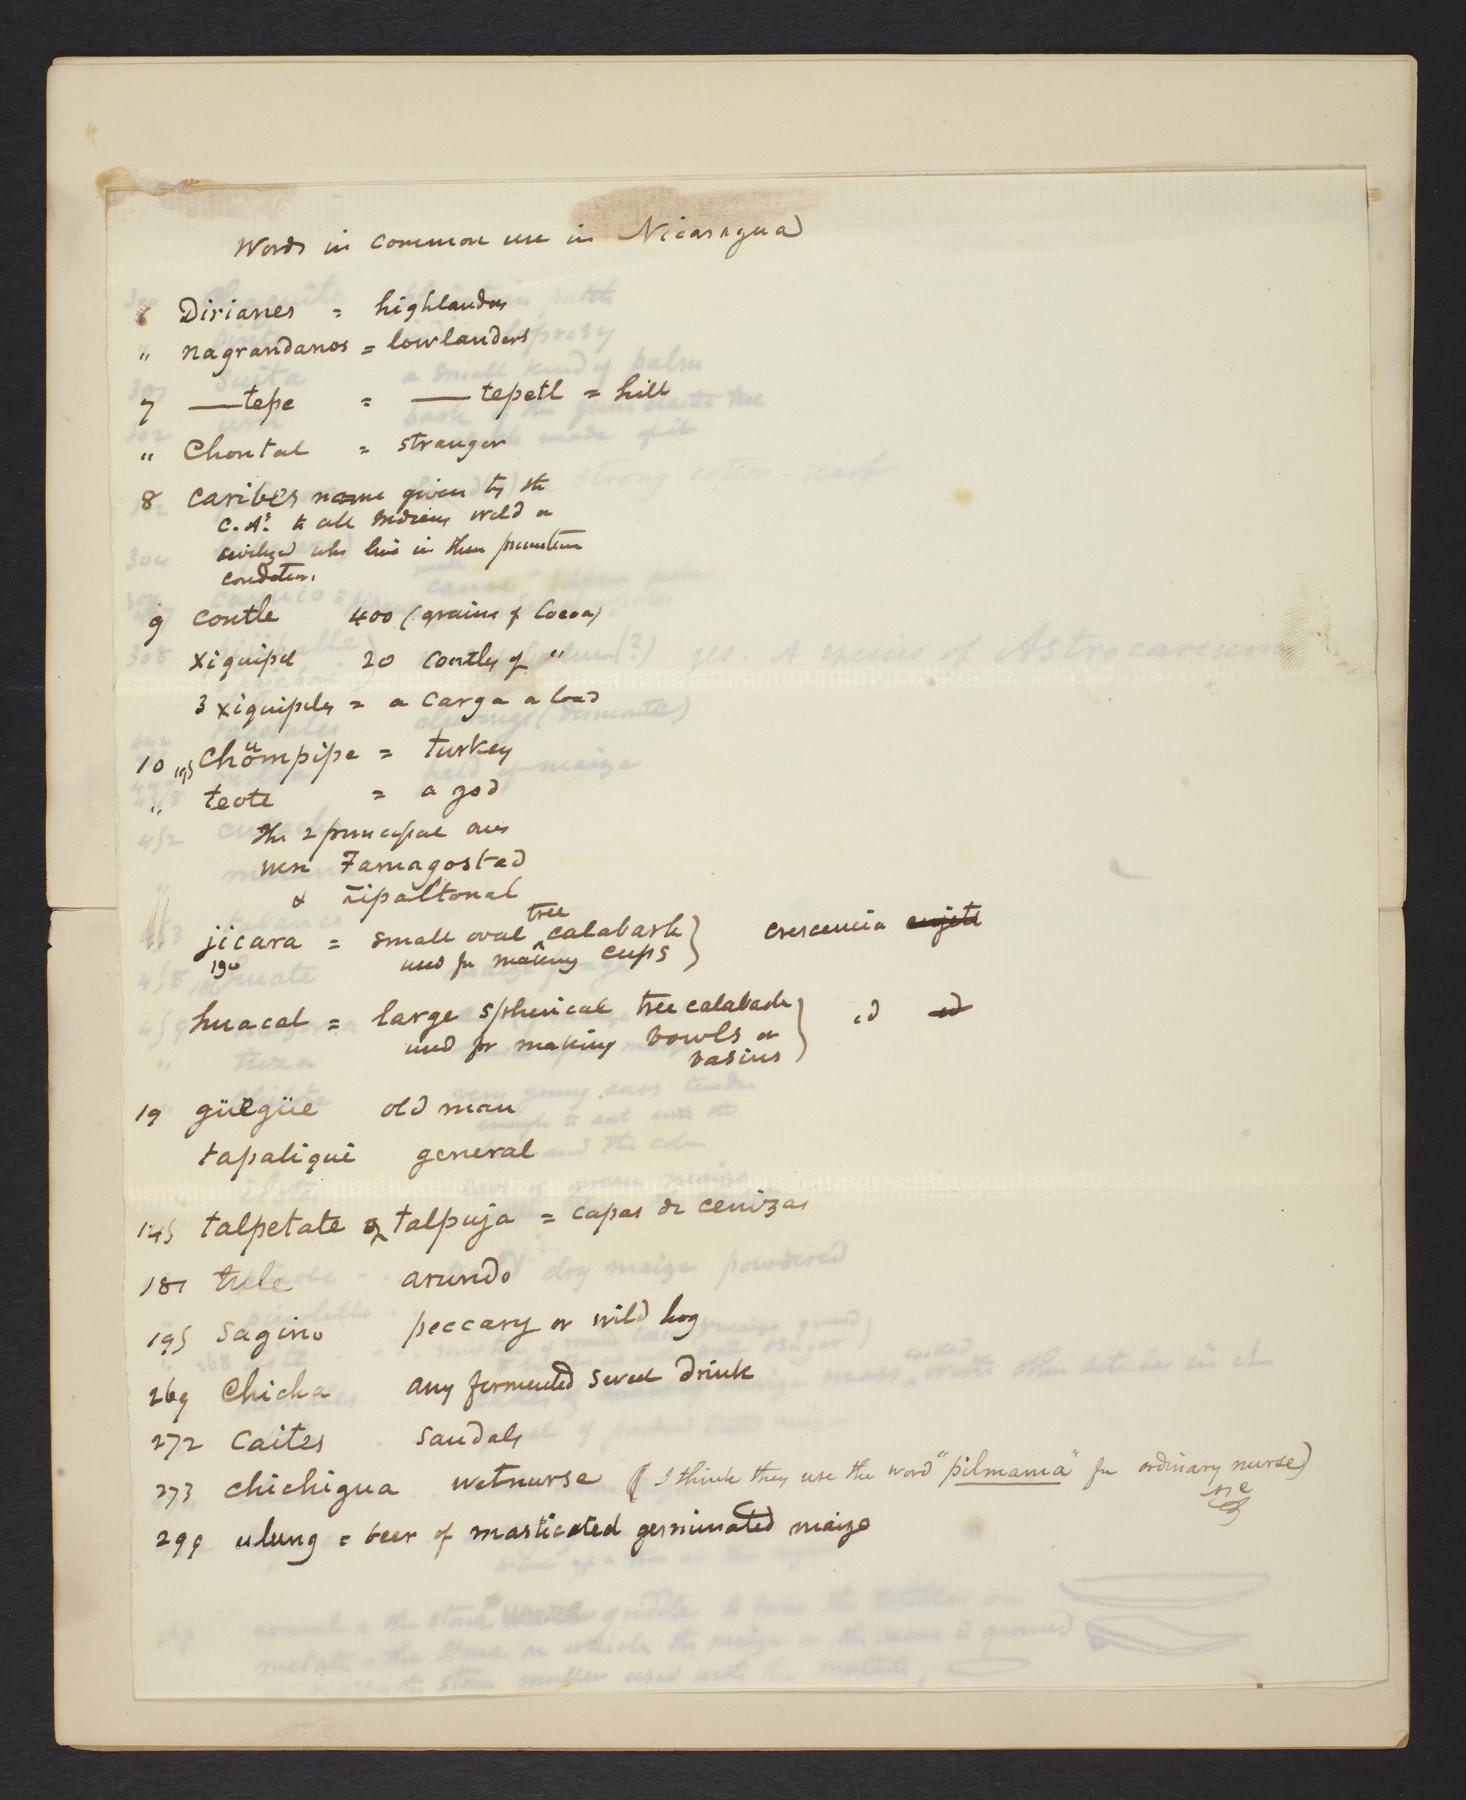 Words in common use in Nicaragua
Dirianes = highlanders
" nagrandanos = lowlanders
7 —tepe = — tepetl = hill
" Chontal = stranger
8 caribes name given by the
C. A.s to all Indians wild or
civilized who live in their primitive
condition.
9 contle 400 (grains of Cocoa)
xiquipil 20 Contles of "
3 xiquipiles = a carga a load
10 195 Chümpipe = turkey
" teote = a god
The 2 principal ones
were Famagostad
& Zipaltonal
jicara = small oval tree calabash crescencia cujete
190 used for making cups
huacal = large spherical tree calabash id id
used for making bowls or
basins
19 güegüe old man
tapaliqui general
145 talpetate or talpuja = capas de cenizas
181 tule arundo
195 Sagino peccary or wild hog
269 Chicha any fermented sweet drink
272 Caites Sandals
273 chichigua wetnurse (I think they use the word "pilmama" for ordinary nurse)
299 ulung = beer of masticated germinated maize